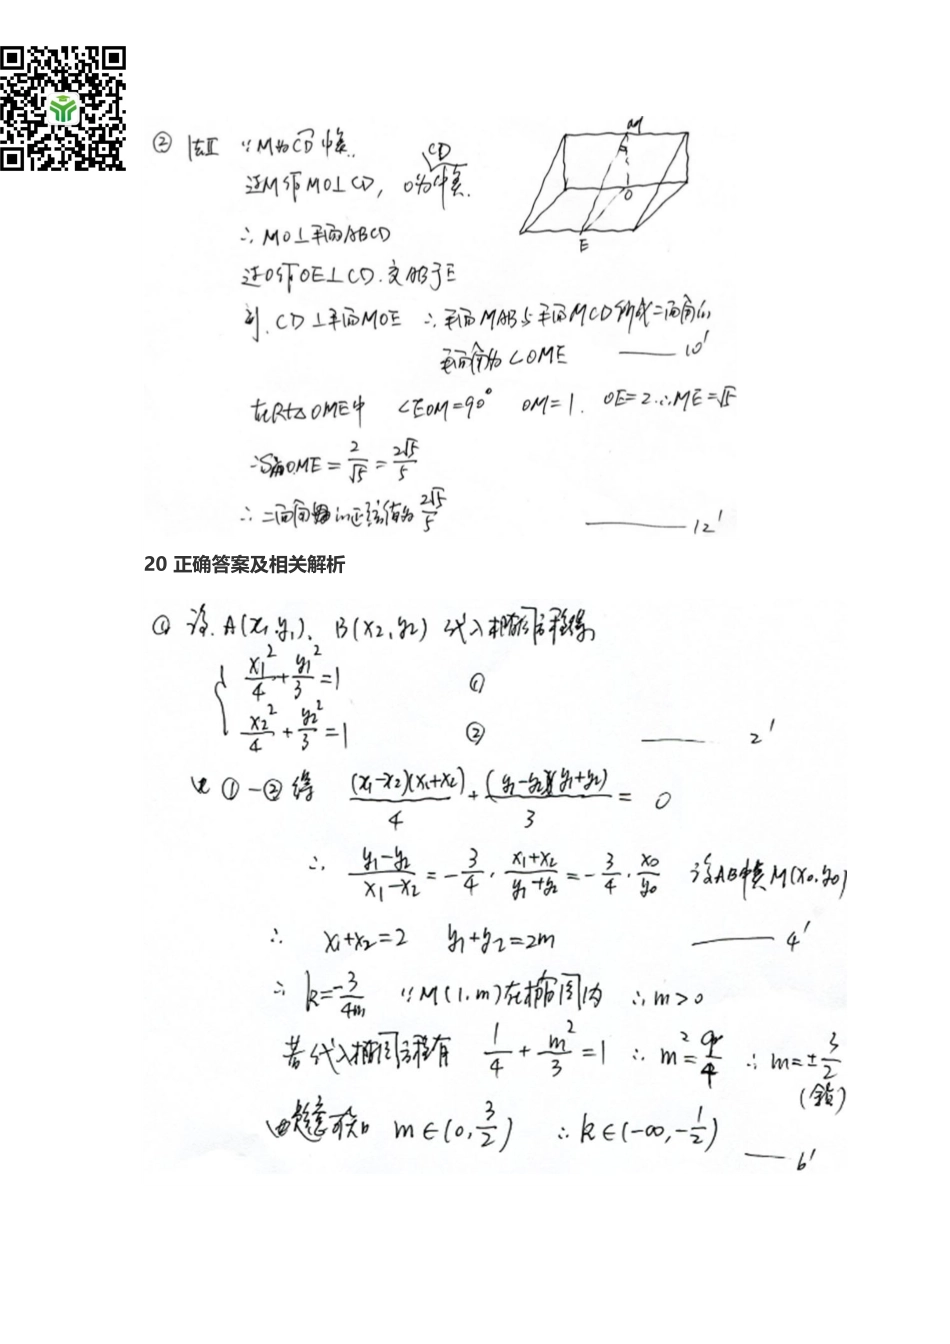 ② 法Ⅱ ∵M为CD中点.
过M作MO⊥CD, O为CD中点.
∴MO⊥平面ABCD
过O作OE⊥CD.交AB于E
则.CD⊥平面MOE ∴平面MAB与平面MCD所成二面角的
平面角为∠OME ——10'
在Rt△OME中 ∠EOM=90° OM=1. OE=2.∴ME=√5
∴sin∠OME=2/√5=2√5/5
∴二面角的正弦值为2√5/5 ——12'
M
O
E
20 正确答案及相关解析
① 设.A(x₁,y₁)、B(x₂,y₂)代入椭圆方程得,
x₁²/4+y₁²/3=1 ①
x₂²/4+y₂²/3=1 ② ——2'
由①-②得 (x₁-x₂)(x₁+x₂)/4+(y₁-y₂)(y₁+y₂)/3=0
∴ (y₁-y₂)/(x₁-x₂)=-3/4·(x₁+x₂)/(y₁+y₂)=-3/4·x₀/y₀ 设AB中点M(x₀,y₀)
∴ x₁+x₂=2 y₁+y₂=2m ——4'
∴ k=-3/4m ∵M(1,m)在椭圆内 ∴m>0
若代入椭圆方程有 1/4+m²/3=1 ∴m²=9/4 ∴m=±3/2
(舍负)
由题意可知 m∈(0,3/2) ∴k∈(-∞,-1/2)
——6'